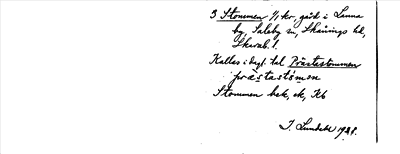 3 Stommen 1/1 kr. gård i Lanna
by, Saleby sn, Skånings hd,
Skarab. l.
Kallas i dagl. tal Prästastommen
prästastömen
Stommen bek, ek, Kb
J. Lundahl 1928.